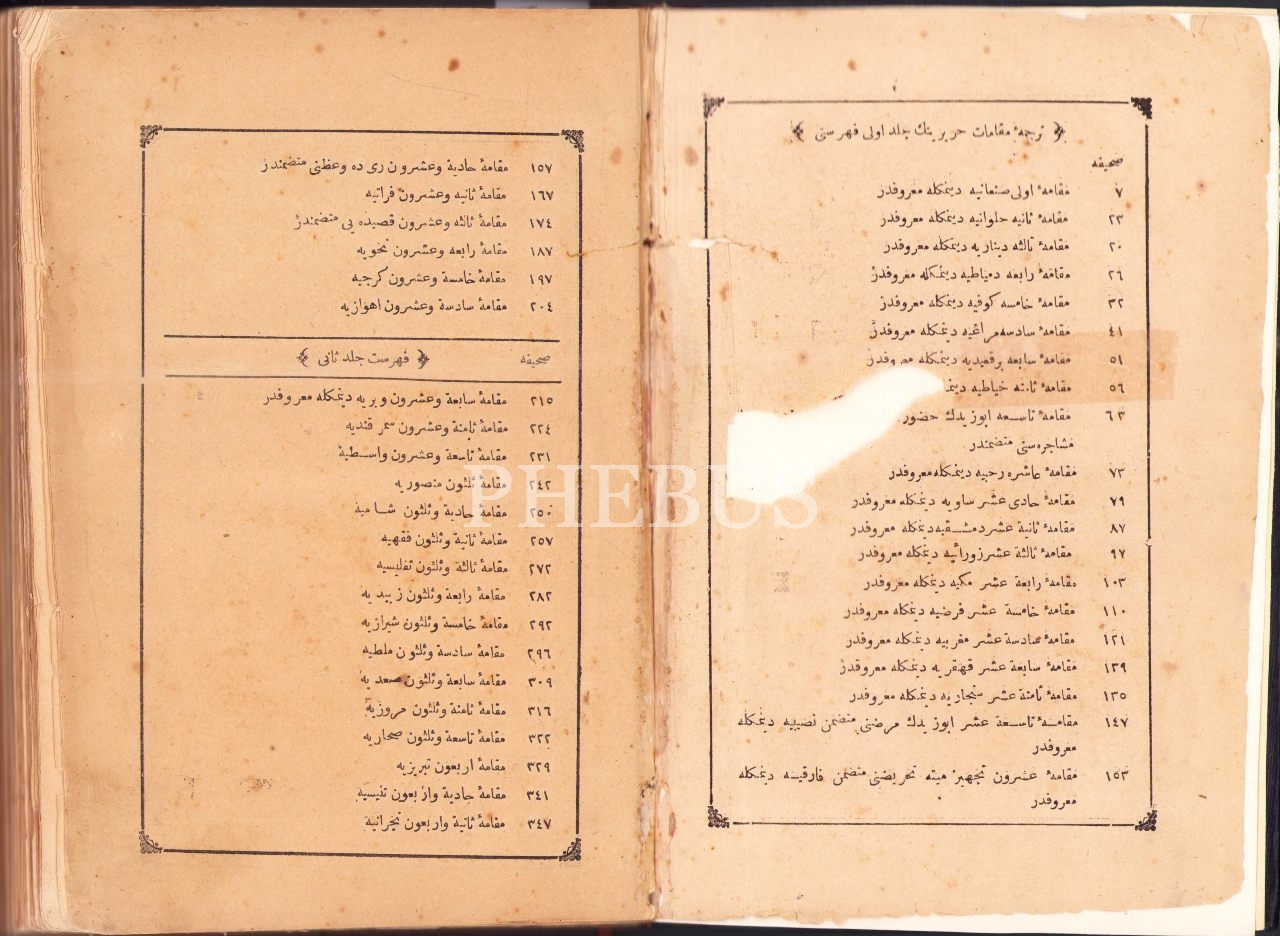 ترجمهٔ مقامات حریرینك جلد اولی فهرستی
صحیفه
٧ مقامهٔ اولی صنعانیه دیمكله معروفدر
٢٣ مقامهٔ ثانیه حلوانیه دیمكله معروفدر
٢٠ مقامهٔ ثالثه دیناریه دیمكله معروفدر
٢٦ مقامهٔ رابعه دمیاطیه دیمكله معروفدر
٣٢ مقامهٔ خامسه كوفیه دیمكله معروفدر
٤١ مقامهٔ سادسه مراغیه دیمكله معروفدر
٥١ مقامهٔ سابعه برقعیدیه دیمكله معروفدر
٥٦ مقامهٔ ثامنه خیاطیه
٦٣ مقامهٔ تاسعه ابوزیدك حضور
مشاجره سنی متضمندر
٧٣ مقامهٔ عاشره رحبیه دیمكله معروفدر
٧٩ مقامهٔ حادی عشر ساویه دیمكله معروفدر
٨٧ مقامهٔ ثانیة عشر دمشقیه دیمكله معروفدر
٩٧ مقامهٔ ثالثة عشر زورائیه دیمكله معروفدر
١٠٣ مقامهٔ رابعة عشر مكیه دیمكله معروفدر
١١٠ مقامهٔ خامسة عشر فرضیه دیمكله معروفدر
١٢١ مقامهٔ سادسة عشر مغربیه دیمكله معروفدر
١٣٩ مقامهٔ سابعة عشر قهقریه دیمكله معروفدر
١٣٥ مقامهٔ ثامنة عشر سنجاریه دیمكله معروفدر
١٤٧ مقامهٔ تاسعة عشر ابوزیدك مرضنی متضمن نصیبیه دیمكله
معروفدر
١٥٣ مقامهٔ عشرون تجهیز میته تحریضنی متضمن فارقیه دیمكله
معروفدر
١٥٧ مقامهٔ حادیة وعشرون ری ده وعظنی متضمندر
١٦٧ مقامهٔ ثانیه وعشرون فراتیه
١٧٤ مقامهٔ ثالثه وعشرون قصیده یی متضمندر
١٨٧ مقامهٔ رابعه وعشرون نحویه
١٩٧ مقامهٔ خامسة وعشرون كرجیه
٢٠٤ مقامهٔ سادسة وعشرون اهوازیه
صحیفه فهرست جلد ثانی
٢١٥ مقامهٔ سابعة وعشرون وبریه دیمكله معروفدر
٢٢٤ مقامهٔ ثامنة وعشرون سمرقندیه
٢٣١ مقامهٔ تاسعة وعشرون واسطیة
٢٤٢ مقامهٔ ثلثون منصوریه
٢٥٠ مقامهٔ حادیة وثلثون شامیة
٢٥٧ مقامهٔ ثانیة وثلثون فقهیه
٢٧٢ مقامهٔ ثالثة وثلثون تفلیسیه
٢٨٢ مقامهٔ رابعة وثلثون زبیدیه
٢٩٢ مقامهٔ خامسة وثلثون شیرازیه
٢٩٦ مقامهٔ سادسة وثلثون ملطیه
٣٠٩ مقامهٔ سابعة وثلثون صعدیه
٣١٦ مقامهٔ ثامنة وثلثون مروزیه
٣٢٢ مقامهٔ تاسعة وثلثون صحاریه
٣٢٩ مقامهٔ اربعون تبریزیه
٣٤١ مقامهٔ حادیة واربعون تنیسیه
٣٤٧ مقامهٔ ثانیة واربعون نجرانیة
PHEBUS